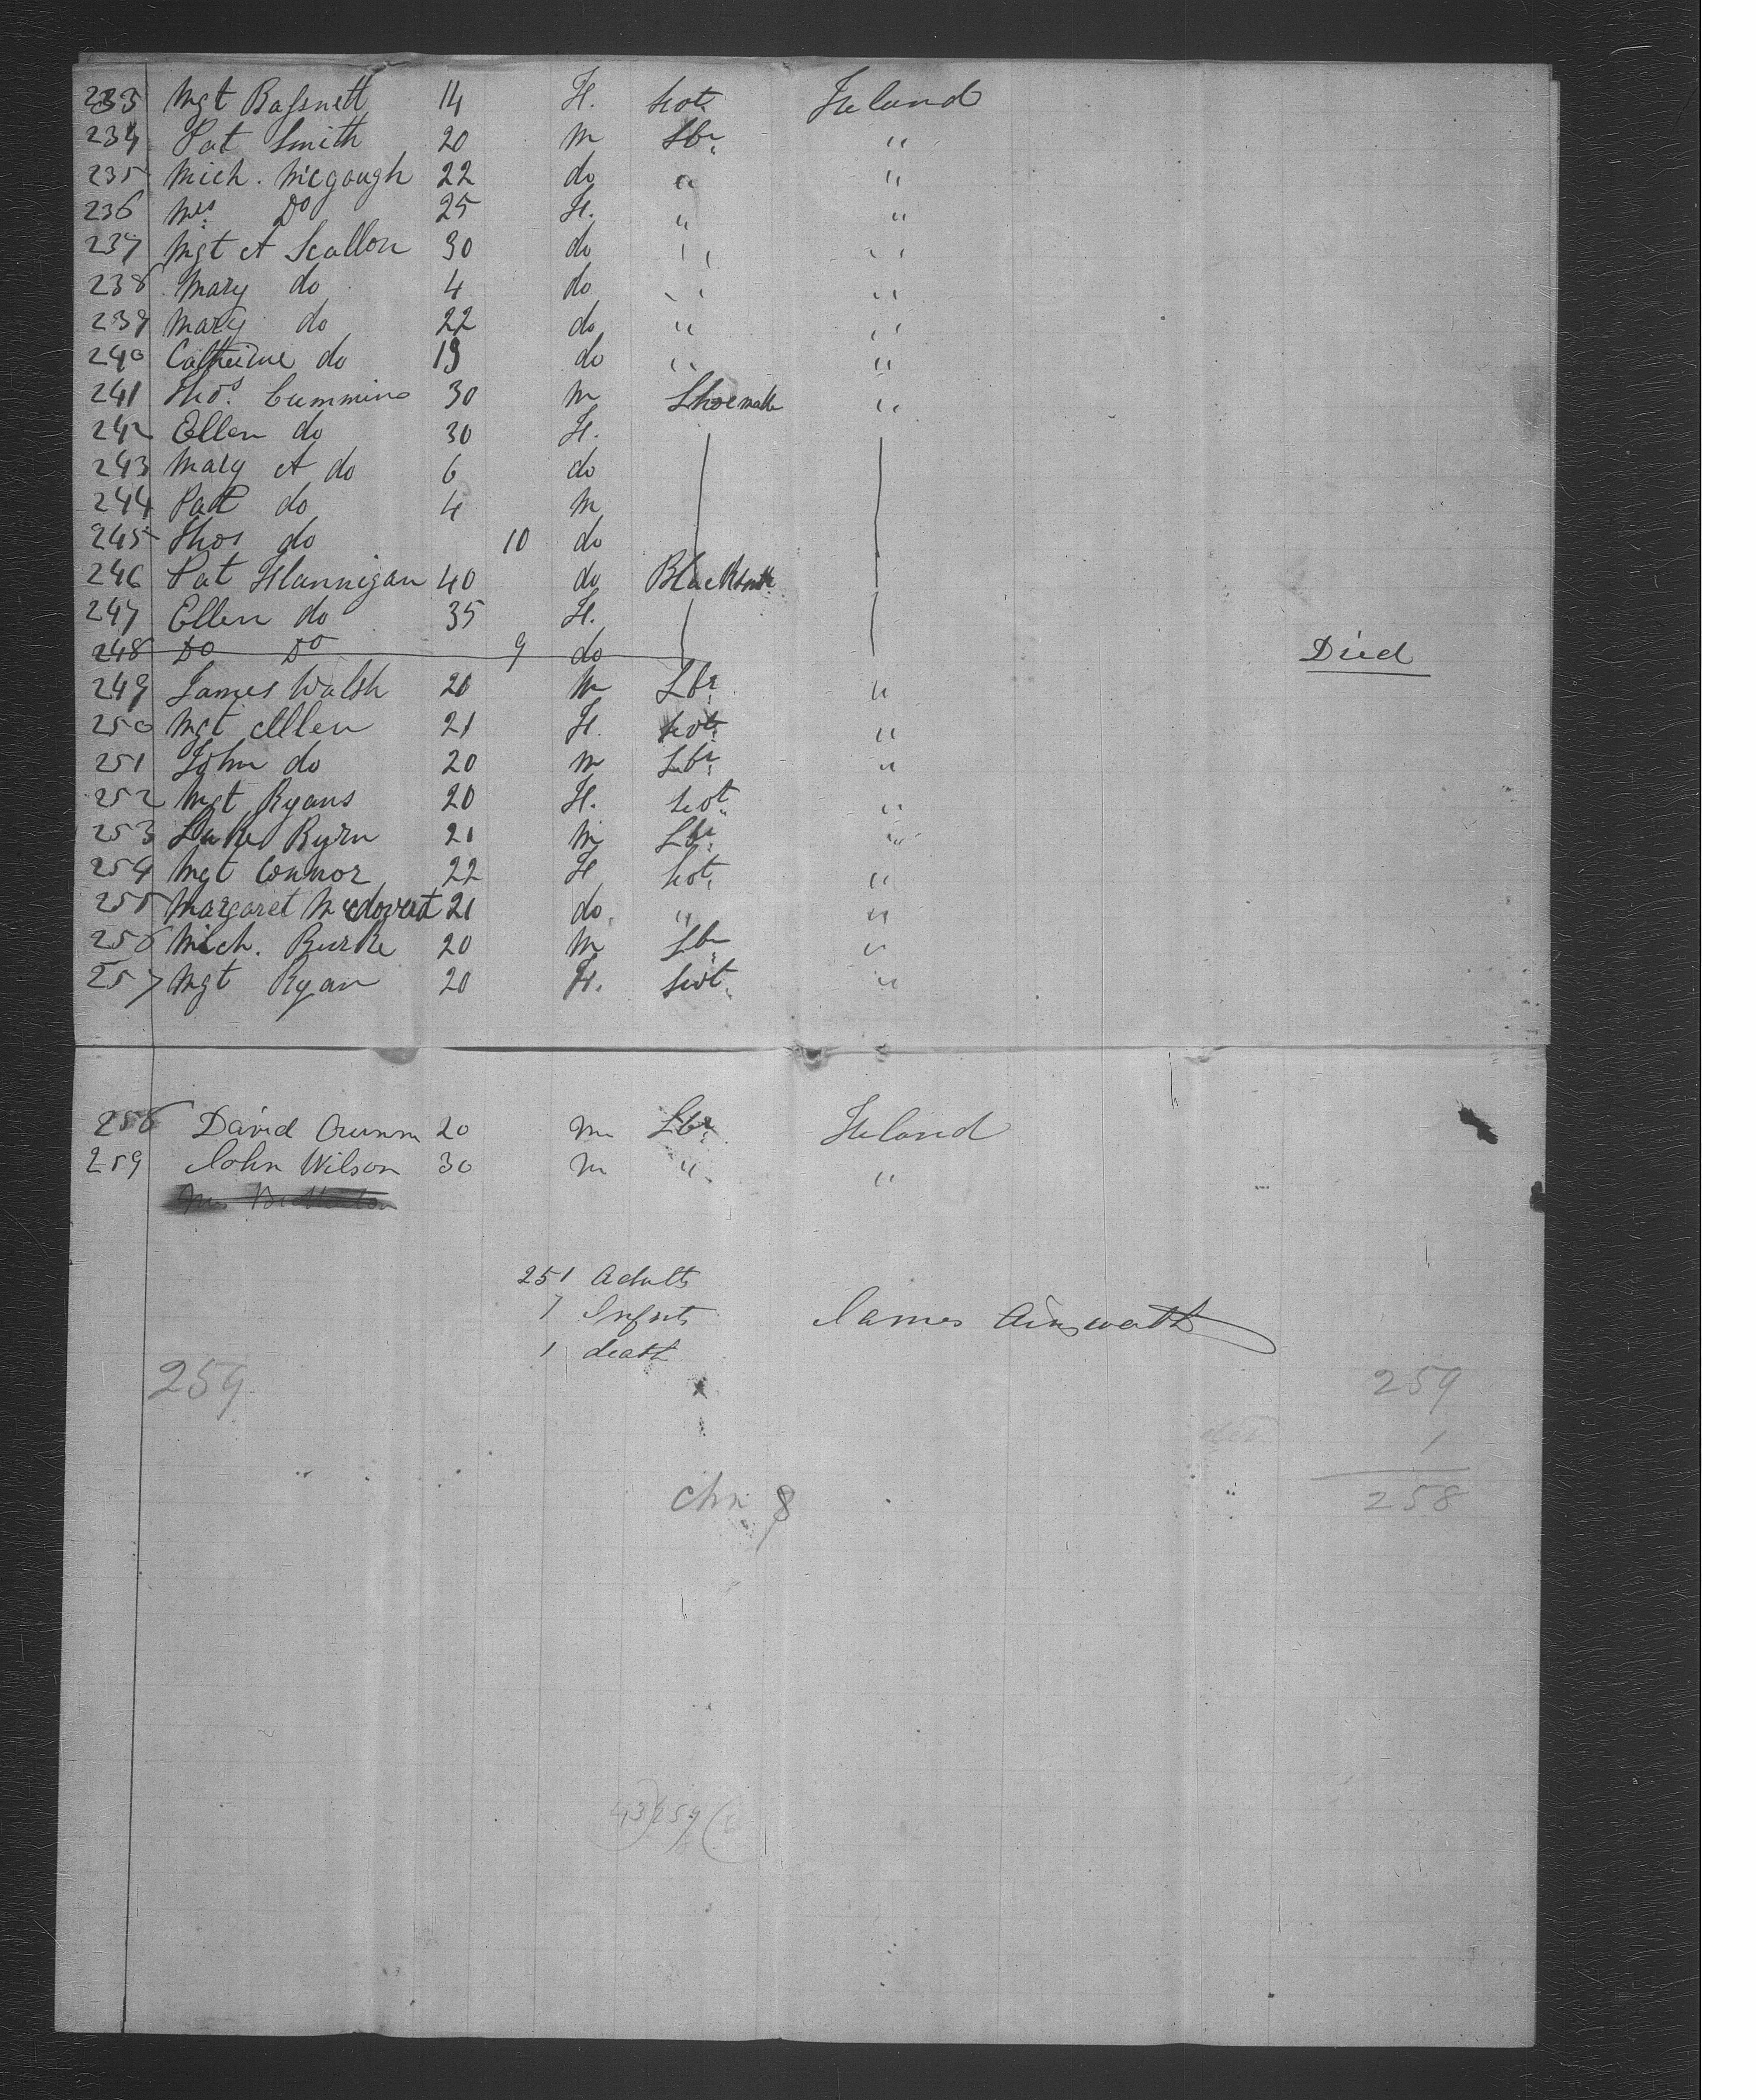 233 Mgt Bassnett 14 F. Ireland
234 Pat Smith 20 m Lbr "
235 Mich. McGough 22 do " "
236 Mrs Do 25 F. " "
237 Mgt A Scallon 30 do " "
238 Mary do 4 do " "
239 Mary do 22 do " "
240 Catherine do 19 do " "
241 Thos. Cummins 30 m Shoemak "
242 Ellen do 30 F.
243 Mary A do 6 do
244 Pat do 4 m
245 Thos do 10 do
246 Pat Flannigan 40 do Blacksmith
247 Ellen do 35 F.
248 Do Do 9 do Died
249 James Walsh 20 m Lbr "
250 Mgt Allen 21 F. "
251 John do 20 m Lbr "
252 Mgt Ryans 20 F. "
253 Luke Byrn 21 m Lbr "
254 Mgt Connor 22 F "
255 Margaret 21 do " "
256 Mich. Burke 20 m Lbr "
257 Mgt Ryan 20 F. "
258 David 20 m Lbr Ireland
259 John Wilson 30 m " "
251 Adults
7 Infnts James Ainsworth
1 death
259 259
1
Chn 8 258
43)259(